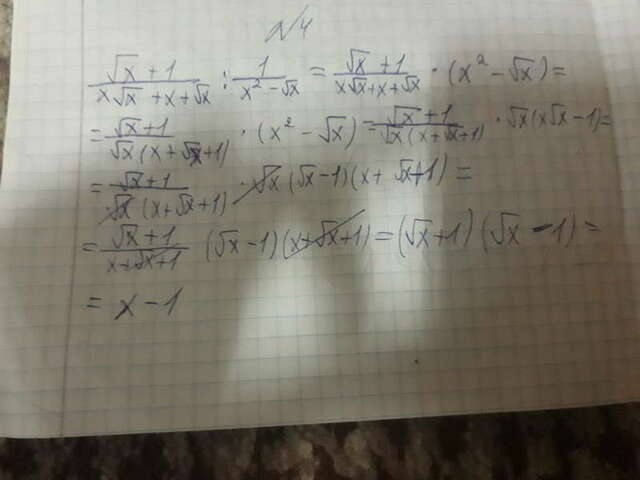 N4
\frac{√x + 1}{x√x + x + √x} : \frac{1}{x² - √x} = \frac{√x + 1}{x√x + x + √x} · (x² - √x) =
= \frac{√x + 1}{√x(x + √x + 1)} · (x² - √x) = \frac{√x + 1}{√x(x + √x + 1)} · √x(x√x - 1) =
= \frac{√x + 1}{√x(x + √x + 1)} · √x(√x - 1)(x + √x + 1) =
= \frac{√x + 1}{x + √x + 1} (√x - 1)(x + √x + 1) = (√x + 1)(√x - 1) =
= x - 1